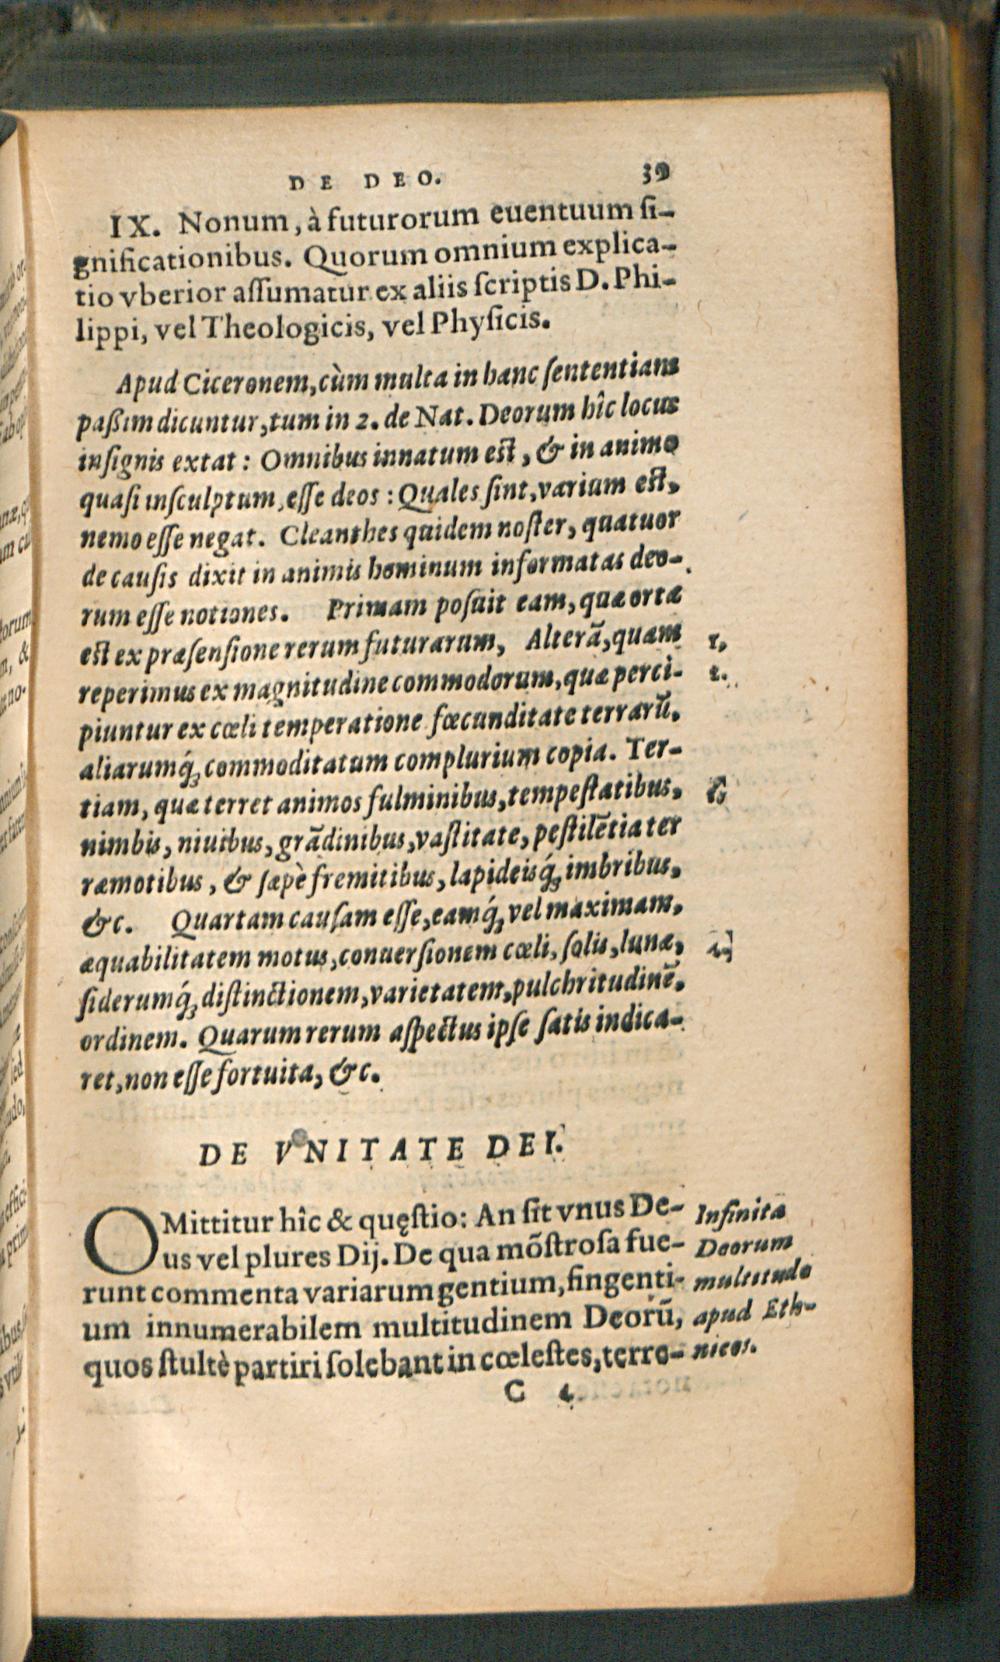 DE DEO. 39
IX. Nonum, à futurorum euentuum ſi-
gnificationibus. Quorum omnium explica-
tio vberior aſſumatur ex aliis ſcriptis D. Phi-
lippi, vel Theologicis, vel Phyſicis.
Apud Ciceronem, cùm multa in hanc ſententiam
paßim dicuntur, tum in 2. de Nat. Deorum hîc locus
inſignis extat: Omnibus innatum eſt, & in animo
quaſi inſculptum, eſſe deos: Quales ſint, varium eſt,
nemo eſſe negat. Cleanthes quidem noſter, quatuor
de cauſis dixit in animis hominum informatas deo-
rum eſſe notiones. Primam poſuit eam, quæ orta
eſt ex præſenſione rerum futurarum, Alterã, quam
1,
reperimus ex magnitudine commodorum, quæ perci-
2.
piuntur ex cœli temperatione fœcunditate terrarũ,
aliarumq́; commoditatum complurium copia. Ter-
tiam, quæ terret animos fulminibus, tempeſtatibus,
nimbis, niuibus, grãdinibus, vaſtitate, peſtilẽtia ter
ræmotibus, & ſæpè fremitibus, lapideisq́; imbribus,
&c. Quartam cauſam eſſe, eamq́; vel maximam,
æquabilitatem motus, conuerſionem cœli, ſolis, lunæ,
ſiderumq́; diſtinctionem, varietatem, pulchritudinẽ,
ordinem. Quarum rerum aſpectus ipſe ſatis indica-
ret, non eſſe fortuita, &c.
DE VNITATE DEI.
OMittitur hîc & quęſtio: An ſit vnus De-
us vel plures Dij. De qua mõſtroſa fue-
runt commenta variarum gentium, fingenti-
um innumerabilem multitudinem Deorũ,
quos ſtultè partiri ſolebant in cœleſtes, terre-
Infinita
Deorum
multitudo
apud Eth-
nicos.
C 4